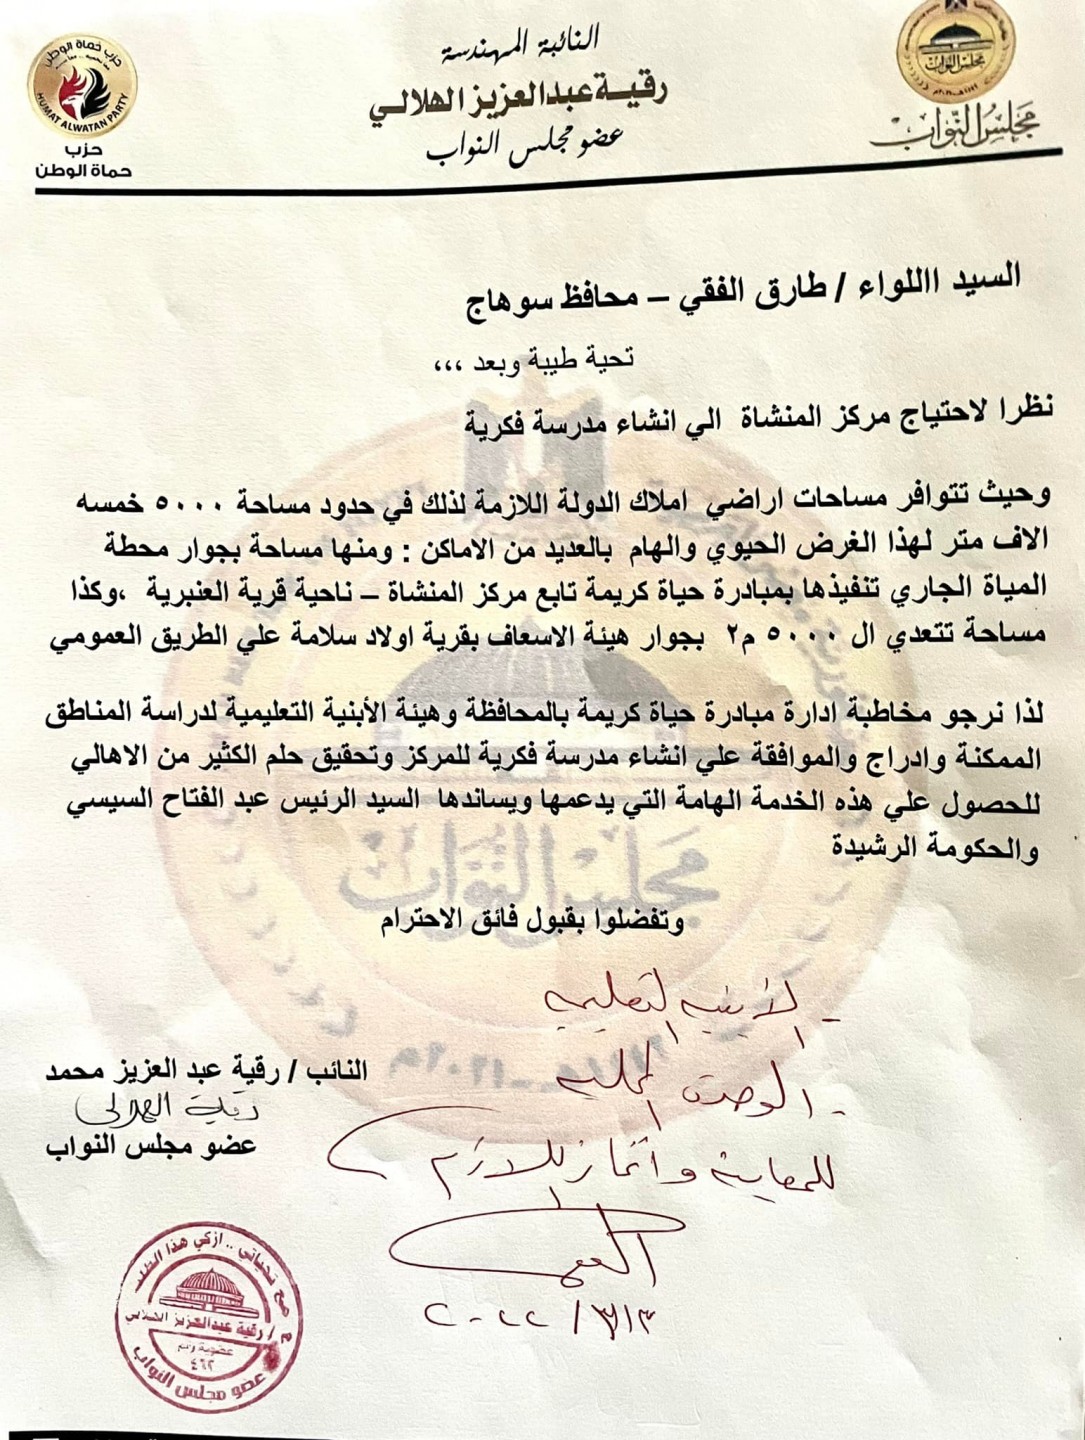 النائبة المهندسة
رقية عبدالعزيز الهلالي
عضو مجلس النواب
حزب حماة الوطن
HUMAT ALWATAN PARTY
حزب
حماة الوطن
مجلس النواب
مجلس النواب
السيد االلواء / طارق الفقي – محافظ سوهاج
تحية طيبة وبعد ،،،
نظرا لاحتياج مركز المنشاة الي انشاء مدرسة فكرية
وحيث تتوافر مساحات اراضي املاك الدولة اللازمة لذلك في حدود مساحة ٥٠٠٠ خمسه
الاف متر لهذا الغرض الحيوي والهام بالعديد من الاماكن : ومنها مساحة بجوار محطة
المياة الجاري تنفيذها بمبادرة حياة كريمة تابع مركز المنشاة – ناحية قرية العنبرية ،وكذا
مساحة تتعدي ال ٥٠٠٠ م٢ بجوار هيئة الاسعاف بقرية اولاد سلامة علي الطريق العمومي
لذا نرجو مخاطبة ادارة مبادرة حياة كريمة بالمحافظة وهيئة الأبنية التعليمية لدراسة المناطق
الممكنة وادراج والموافقة علي انشاء مدرسة فكرية للمركز وتحقيق حلم الكثير من الاهالي
للحصول علي هذه الخدمة الهامة التي يدعمها ويساندها السيد الرئيس عبد الفتاح السيسي
والحكومة الرشيدة
مجلس النواب
وتفضلوا بقبول فائق الاحترام
- الأبنيه التعليميه
- الوحدة المحليه
للمعاينة واتخاذ اللازم
النائب / رقية عبد العزيز محمد
رقية الهلالى
عضو مجلس النواب
مع تحياتي .. ازكي هذا الطلب
م / رقية عبدالعزيز الهلالي
عضوية رقم
٤٦٢
عضو مجلس النواب